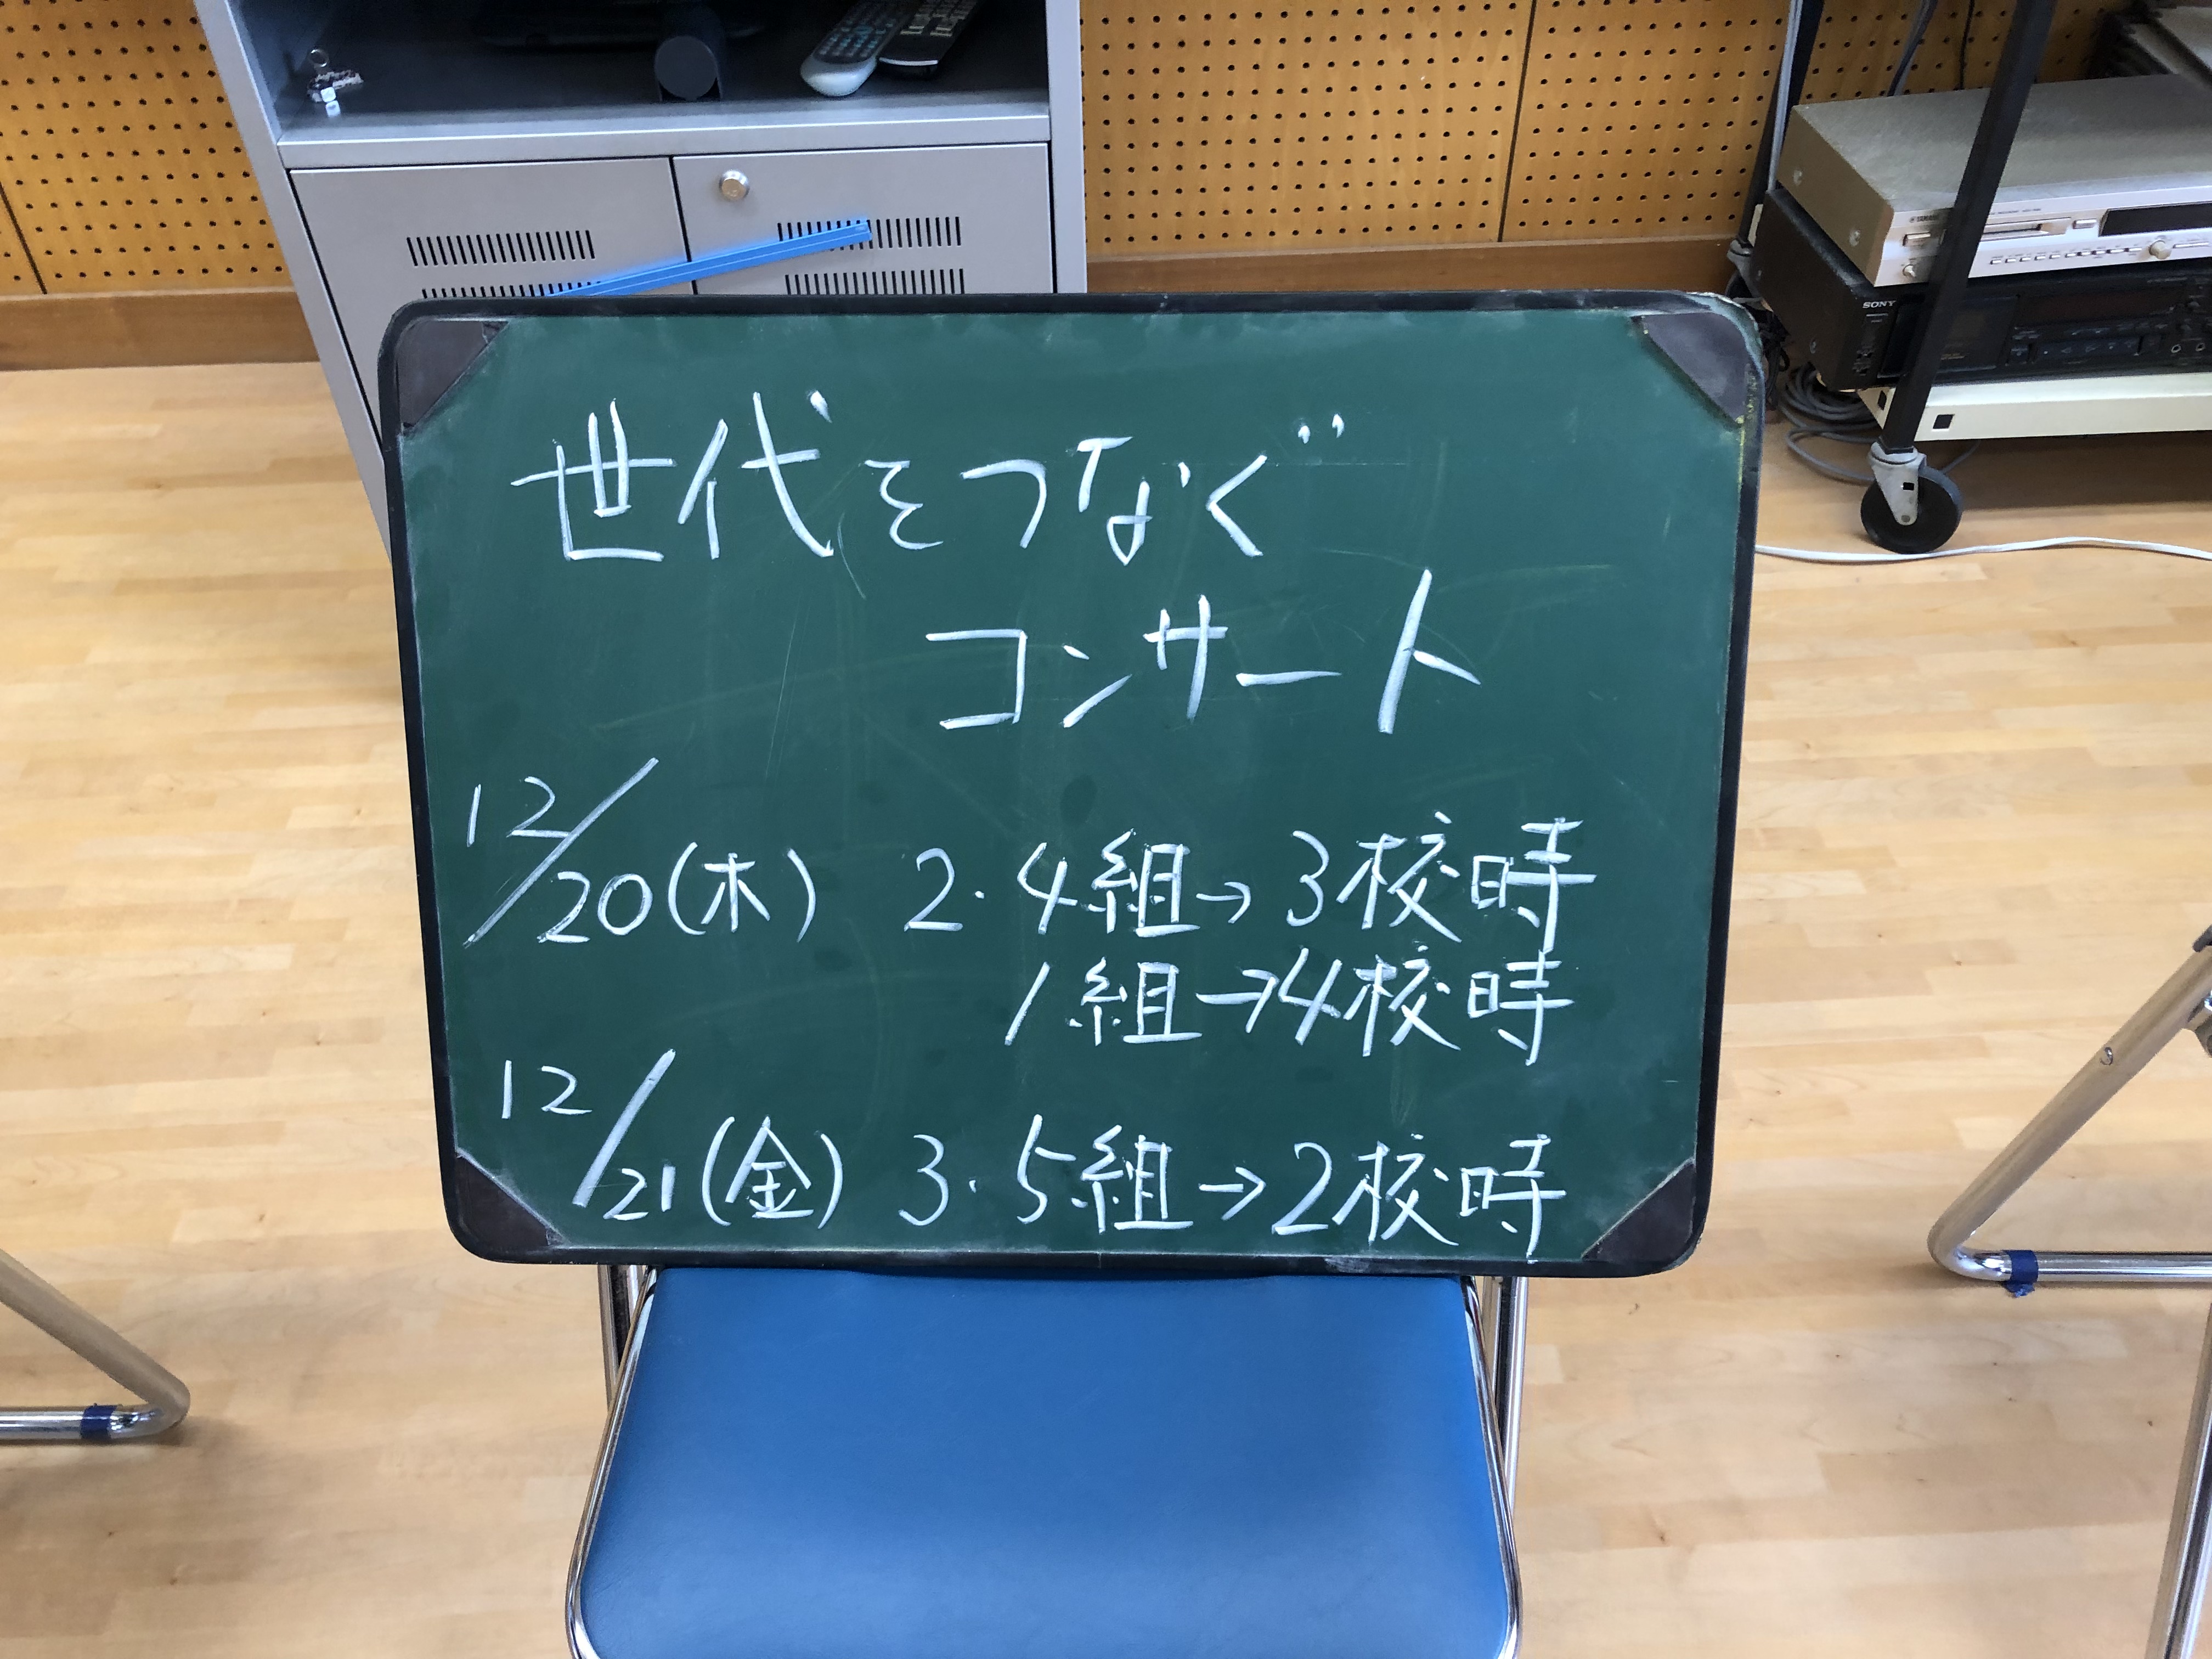 世代をつなぐ
コンサート
12/20(木) 2・4組→3校時
1組→4校時
12/21(金) 3・5組→2校時
SONY